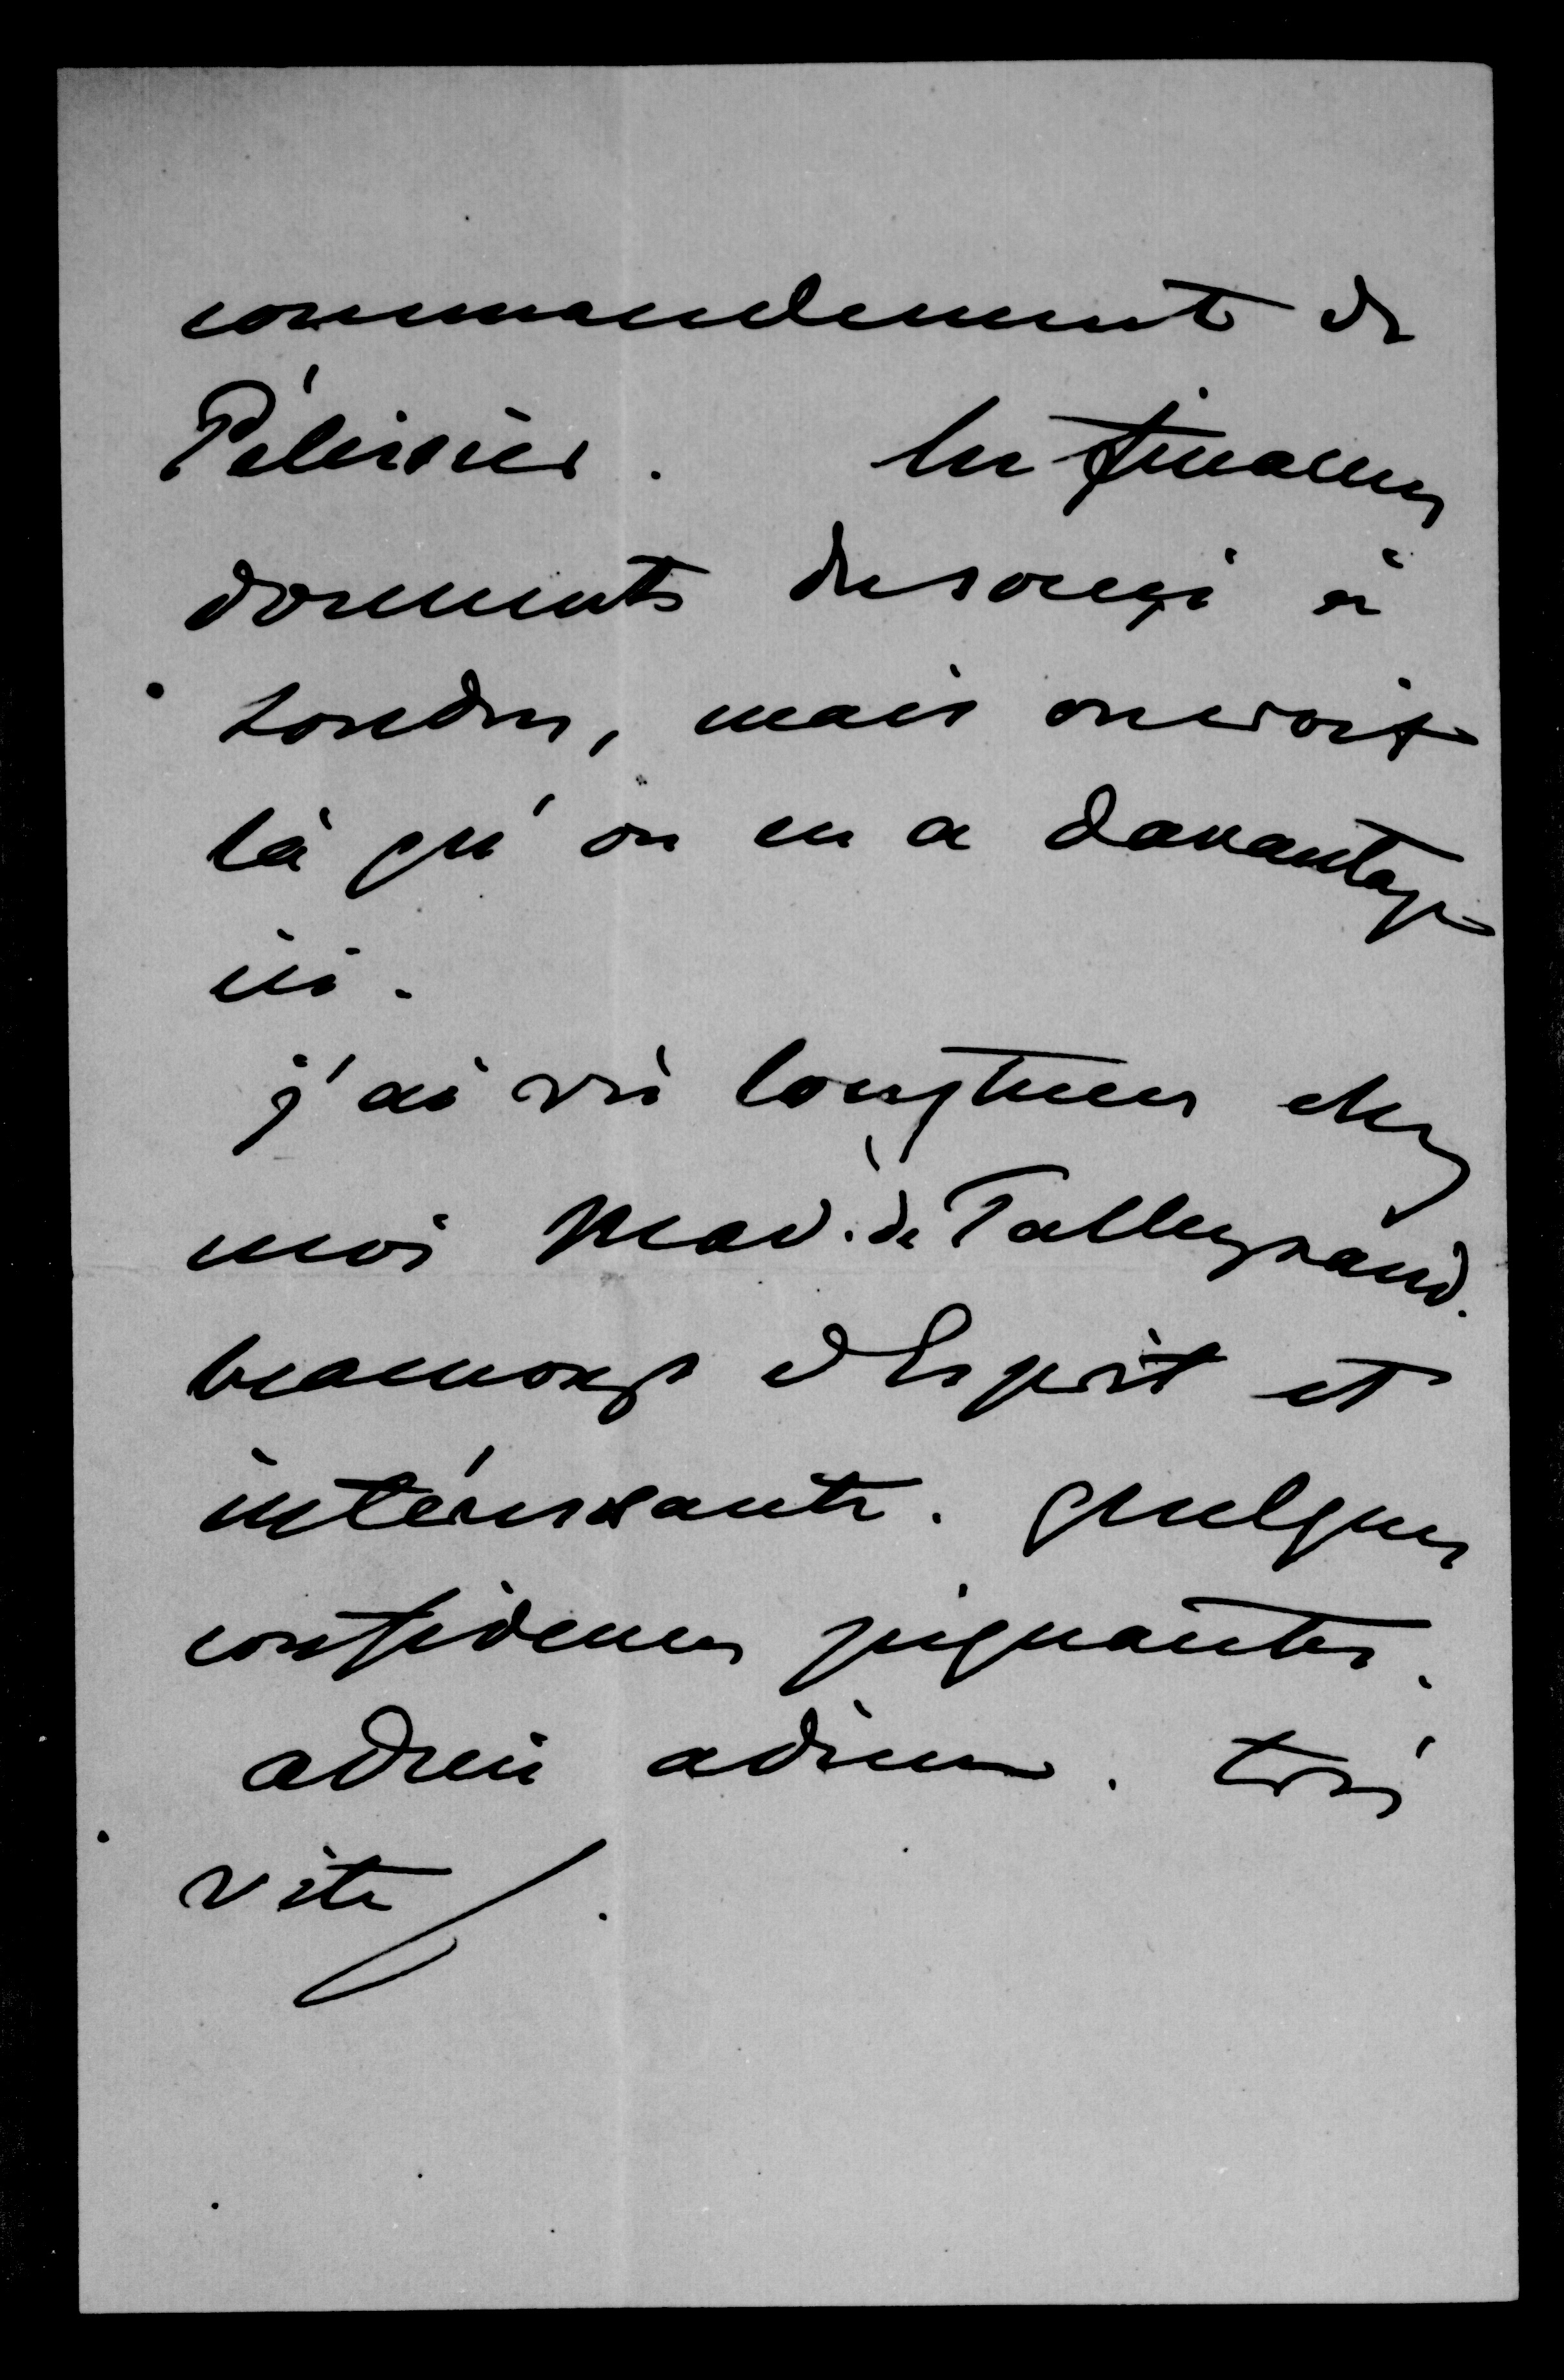 commandement de
Pélissier. les finances
donnent du souci à
Londres, mais on croit
là qu'on en a davantage
ici.
j'ai vu longtems chez
moi Mad. de Talleyrand.
beaucoup d'Esprit et
intéressante. quelques
confidences piquantes.
adieu adieu. très
vite